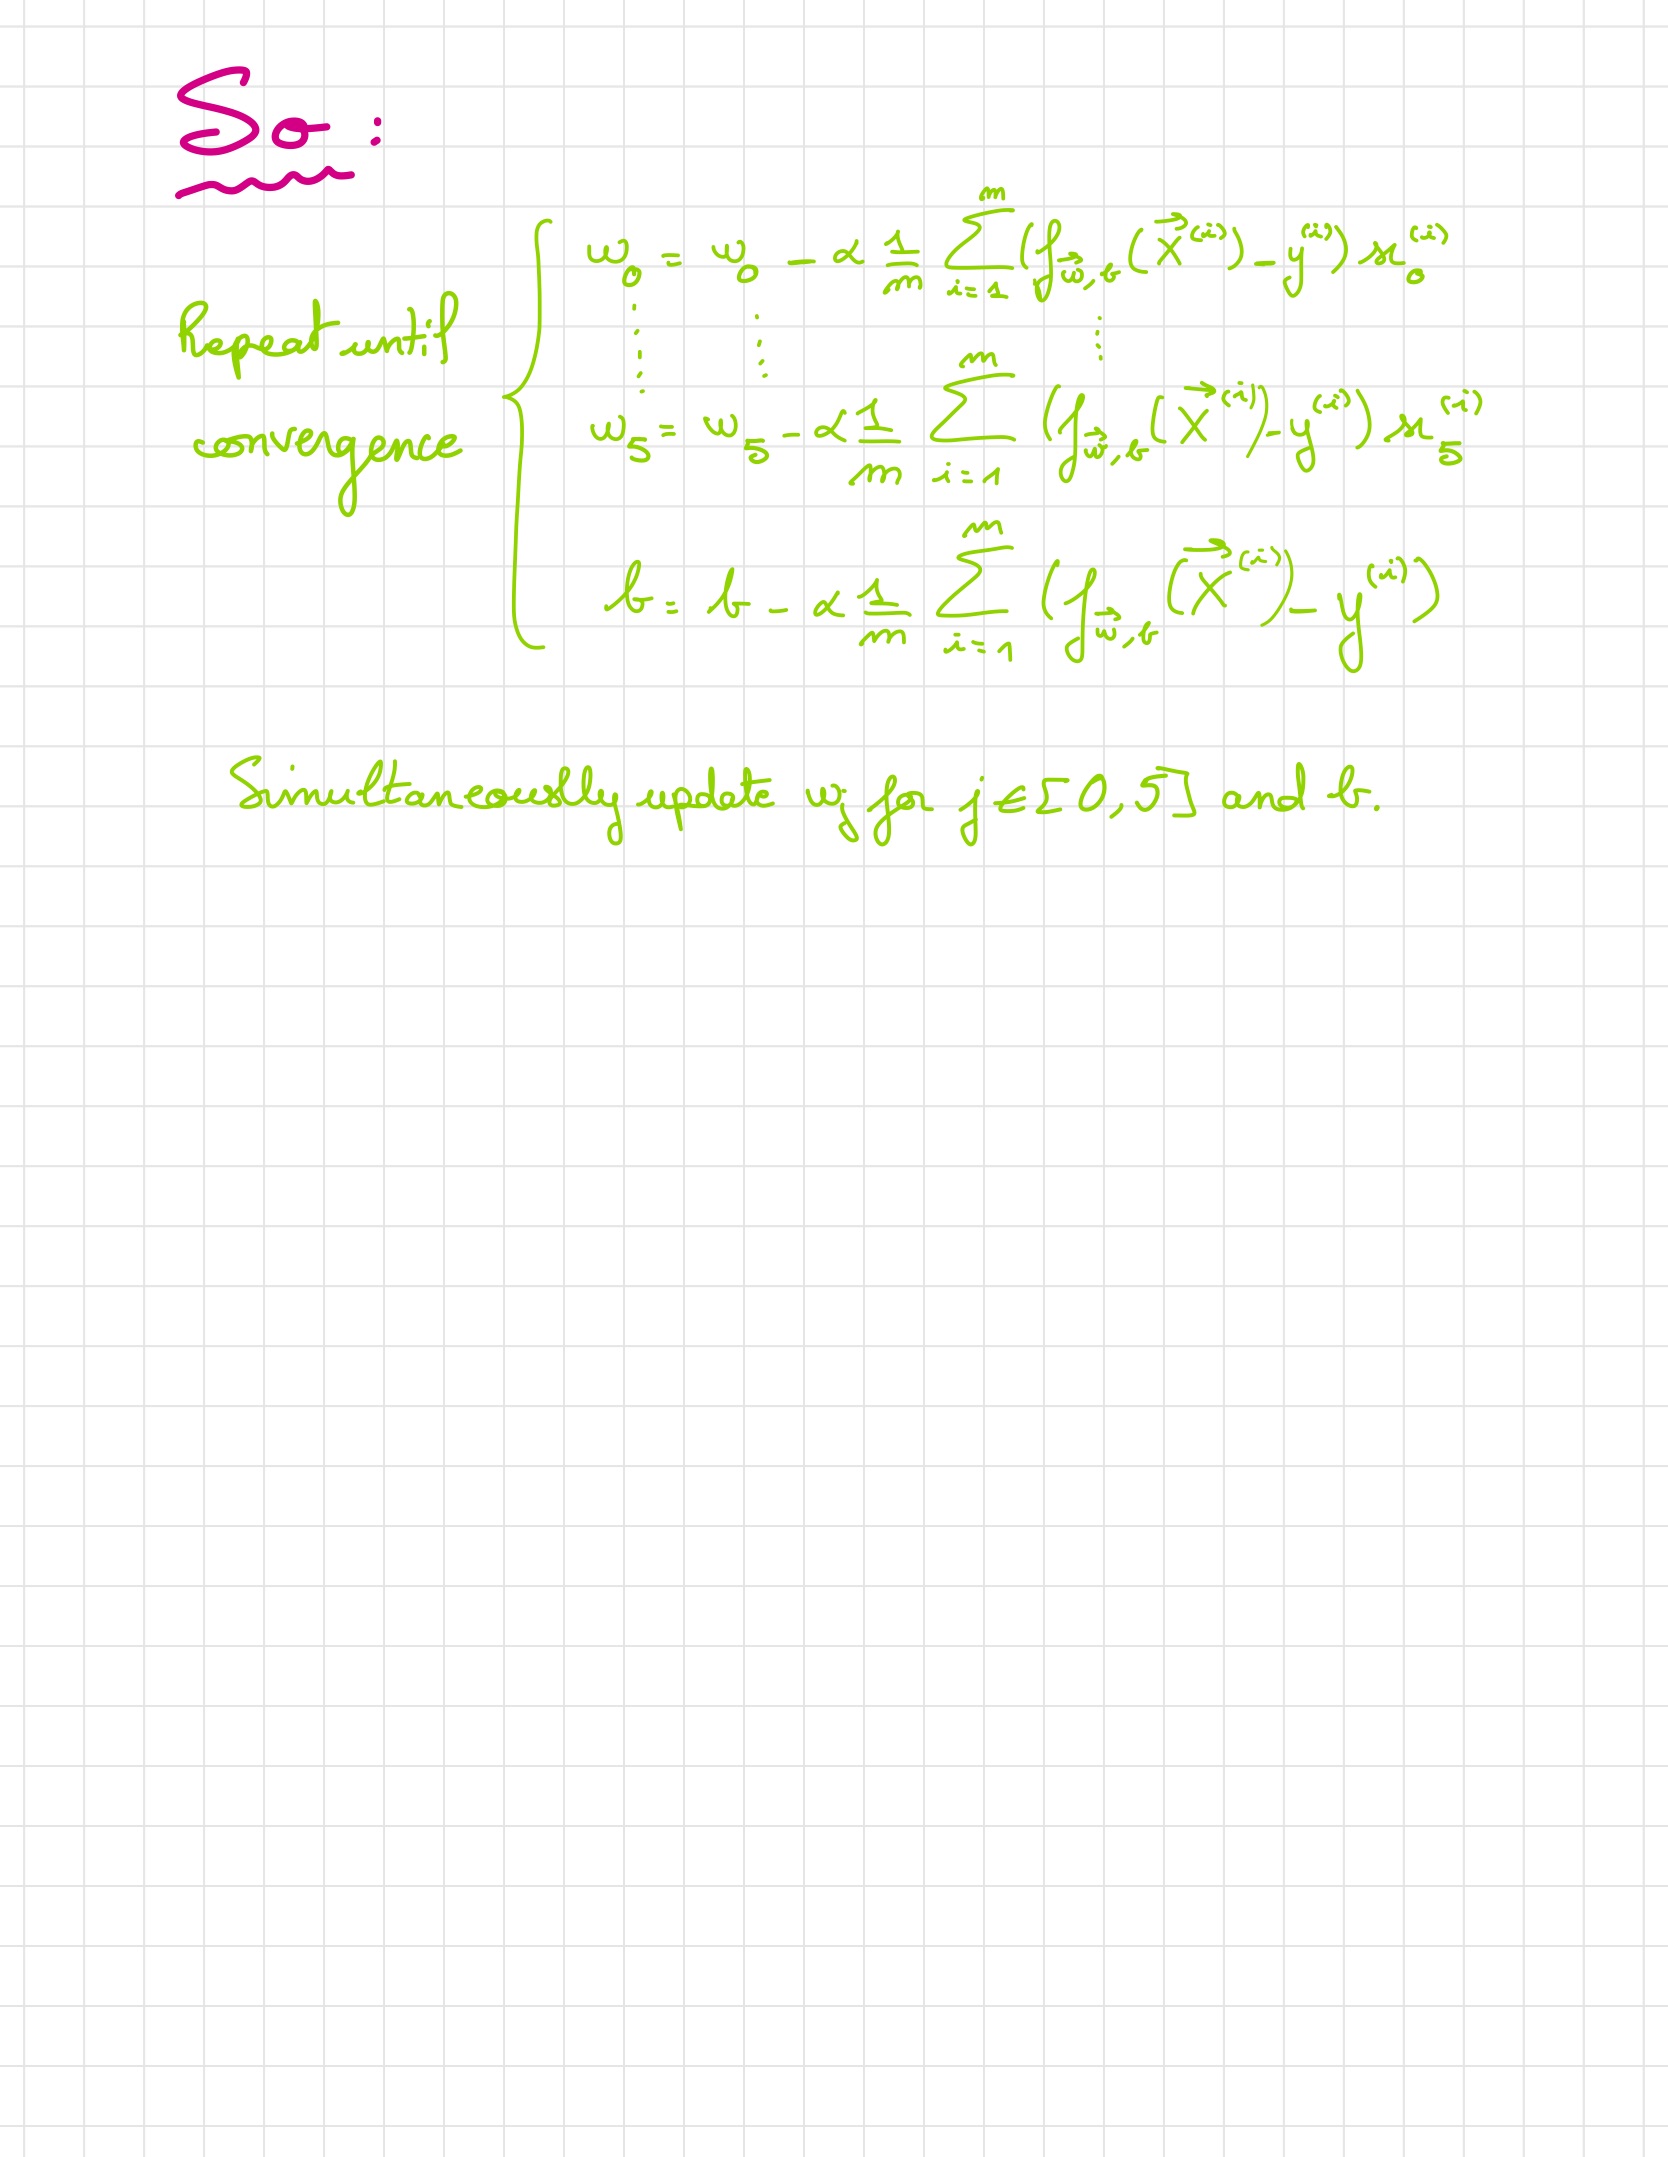 So :
Repeat until convergence
w₀ = w₀ - α 1/m ∑_{i=1}^{m} (f_{w⃗,b}(X⃗^{(i)}) - y^{(i)}) x₀^{(i)}
⋮ ⋮ ⋮
w₅ = w₅ - α 1/m ∑_{i=1}^{m} (f_{w⃗,b}(X⃗^{(i)}) - y^{(i)}) x₅^{(i)}
b = b - α 1/m ∑_{i=1}^{m} (f_{w⃗,b}(X⃗^{(i)}) - y^{(i)})
Simultaneously update wⱼ for j ∈ [0,5] and b.